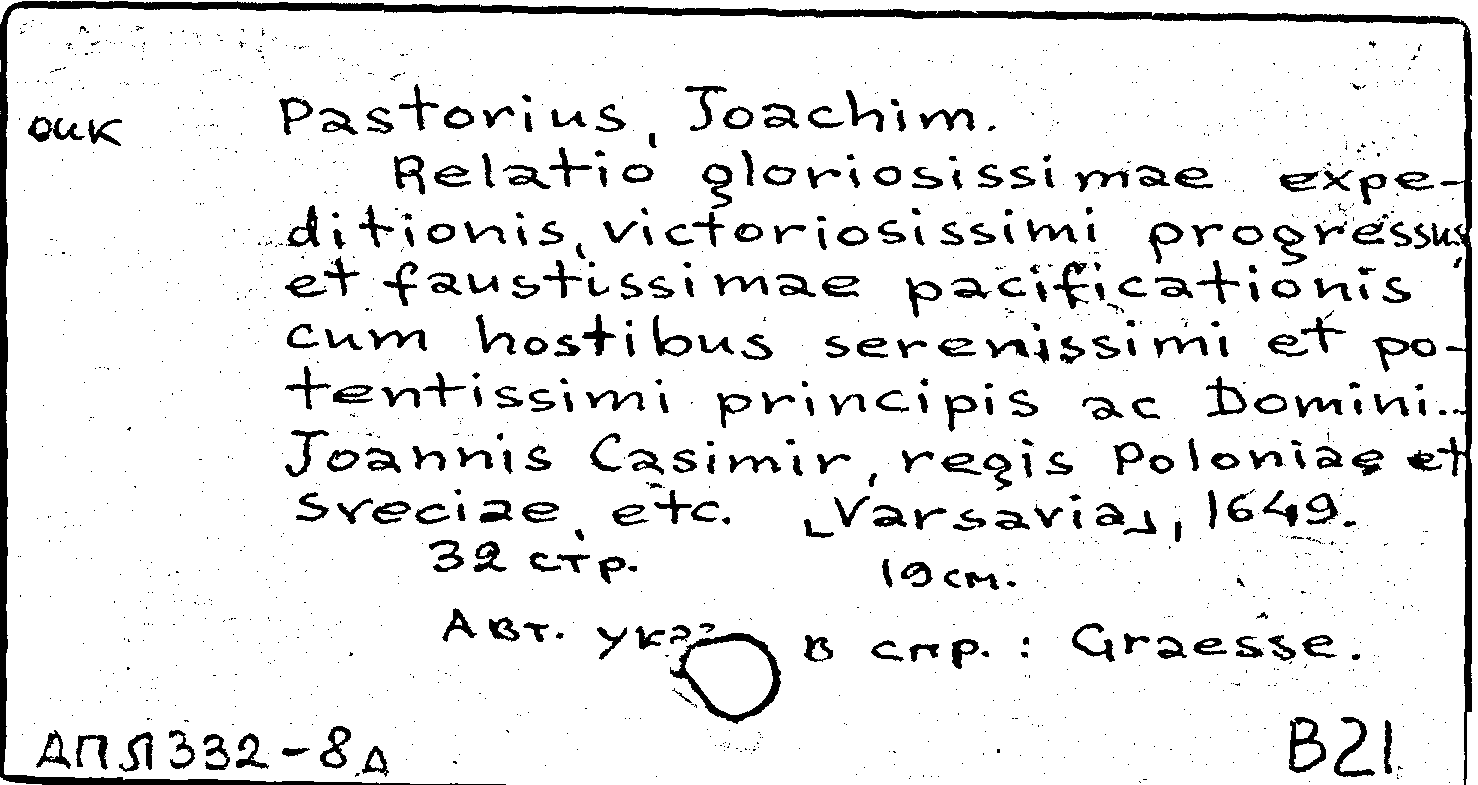 оик
Pastorius, Joachim.
Relatio gloriosissimae expe-
ditionis, victoriosissimi progressus,
et faustissimae pacificationis
cum hostibus serenissimi et po-
tentissimi principis ac Domini...
Joannis Casimir, regis Poloniae et
Sveciae, etc. [Varsavia], 1649.
32 стр. 19 см.
Авт. указ в спр.: Graesse.
АПЛ332-8д B21